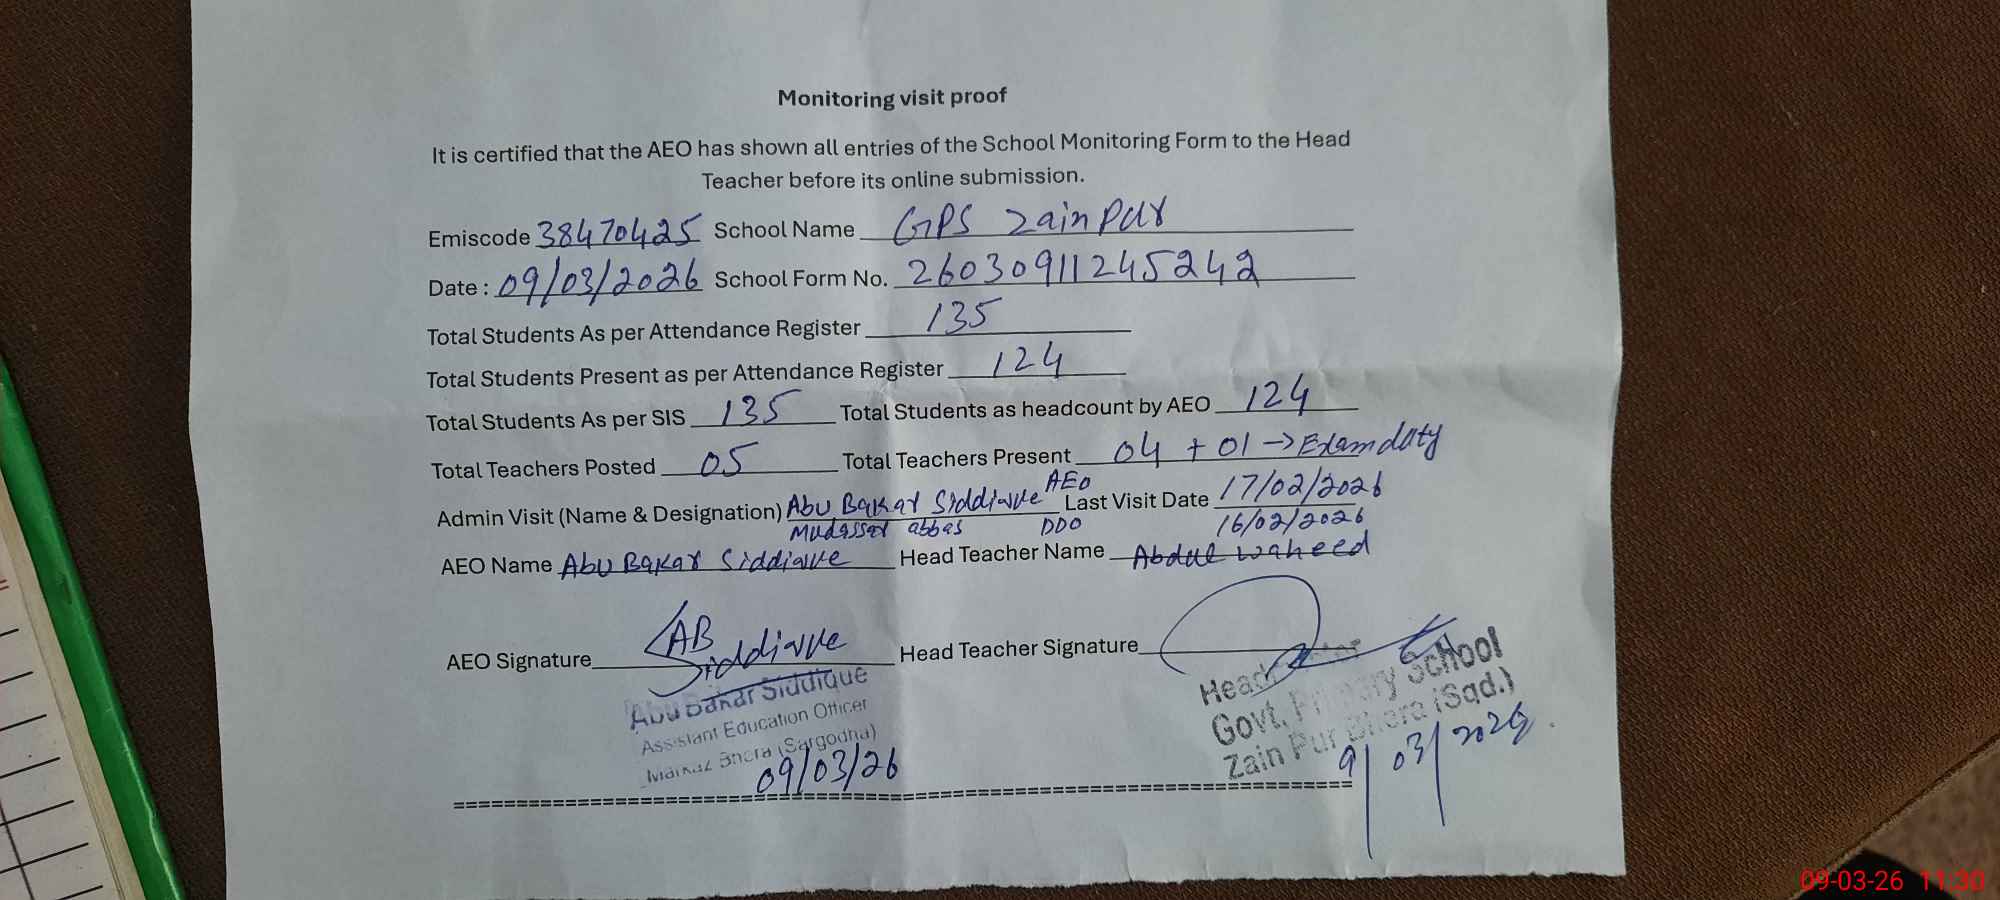 Monitoring visit proof
It is certified that the AEO has shown all entries of the School Monitoring Form to the Head
Teacher before its online submission.
Emiscode 38470425 School Name GPS Zainpur
Date : 09/03/2026 School Form No. 26030911245242
Total Students As per Attendance Register 135
Total Students Present as per Attendance Register 124
Total Students As per SIS 135 Total Students as headcount by AEO 124
Total Teachers Posted 05 Total Teachers Present 04 + 01 → Exam duty
Admin Visit (Name & Designation) Abu Bakar Siddique AEO Last Visit Date 17/02/2026
Mudassar abbas DDO 16/02/2026
AEO Name Abu Bakar Siddique Head Teacher Name Abdul waheed
AEO Signature AB Siddique Head Teacher Signature
Abu Bakar Siddique
Assistant Education Officer
Markaz Bhera (Sargodha)
09/03/26
Head
Govt. Primary School
Zain Pur Bhera (Sgd.)
9/03/2026
09-03-26 11:30